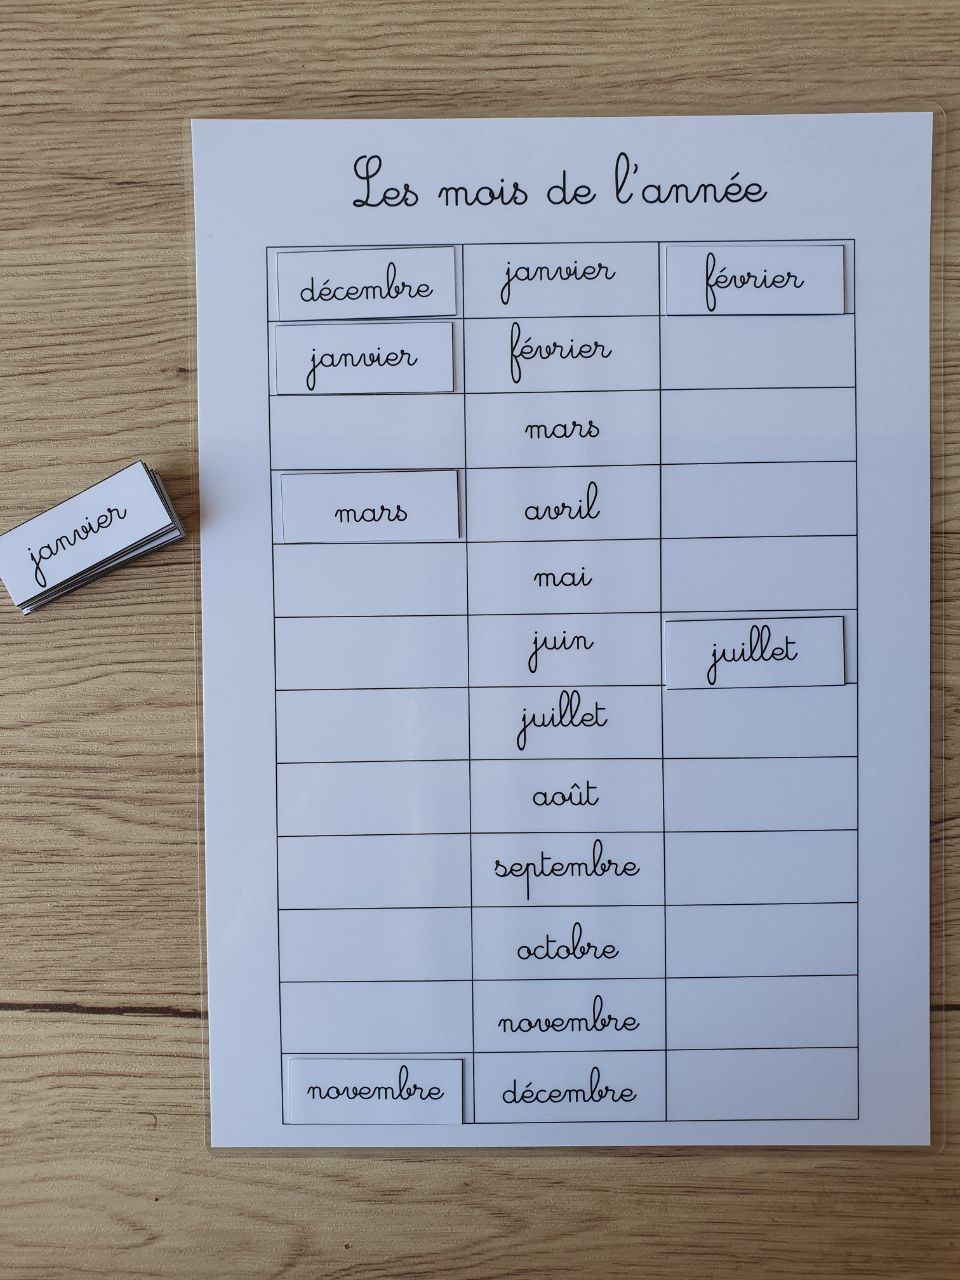 Les mois de l'année
décembre janvier février
janvier février
mars
mars avril
janvier
mai
juin juillet
juillet
août
septembre
octobre
novembre
novembre décembre